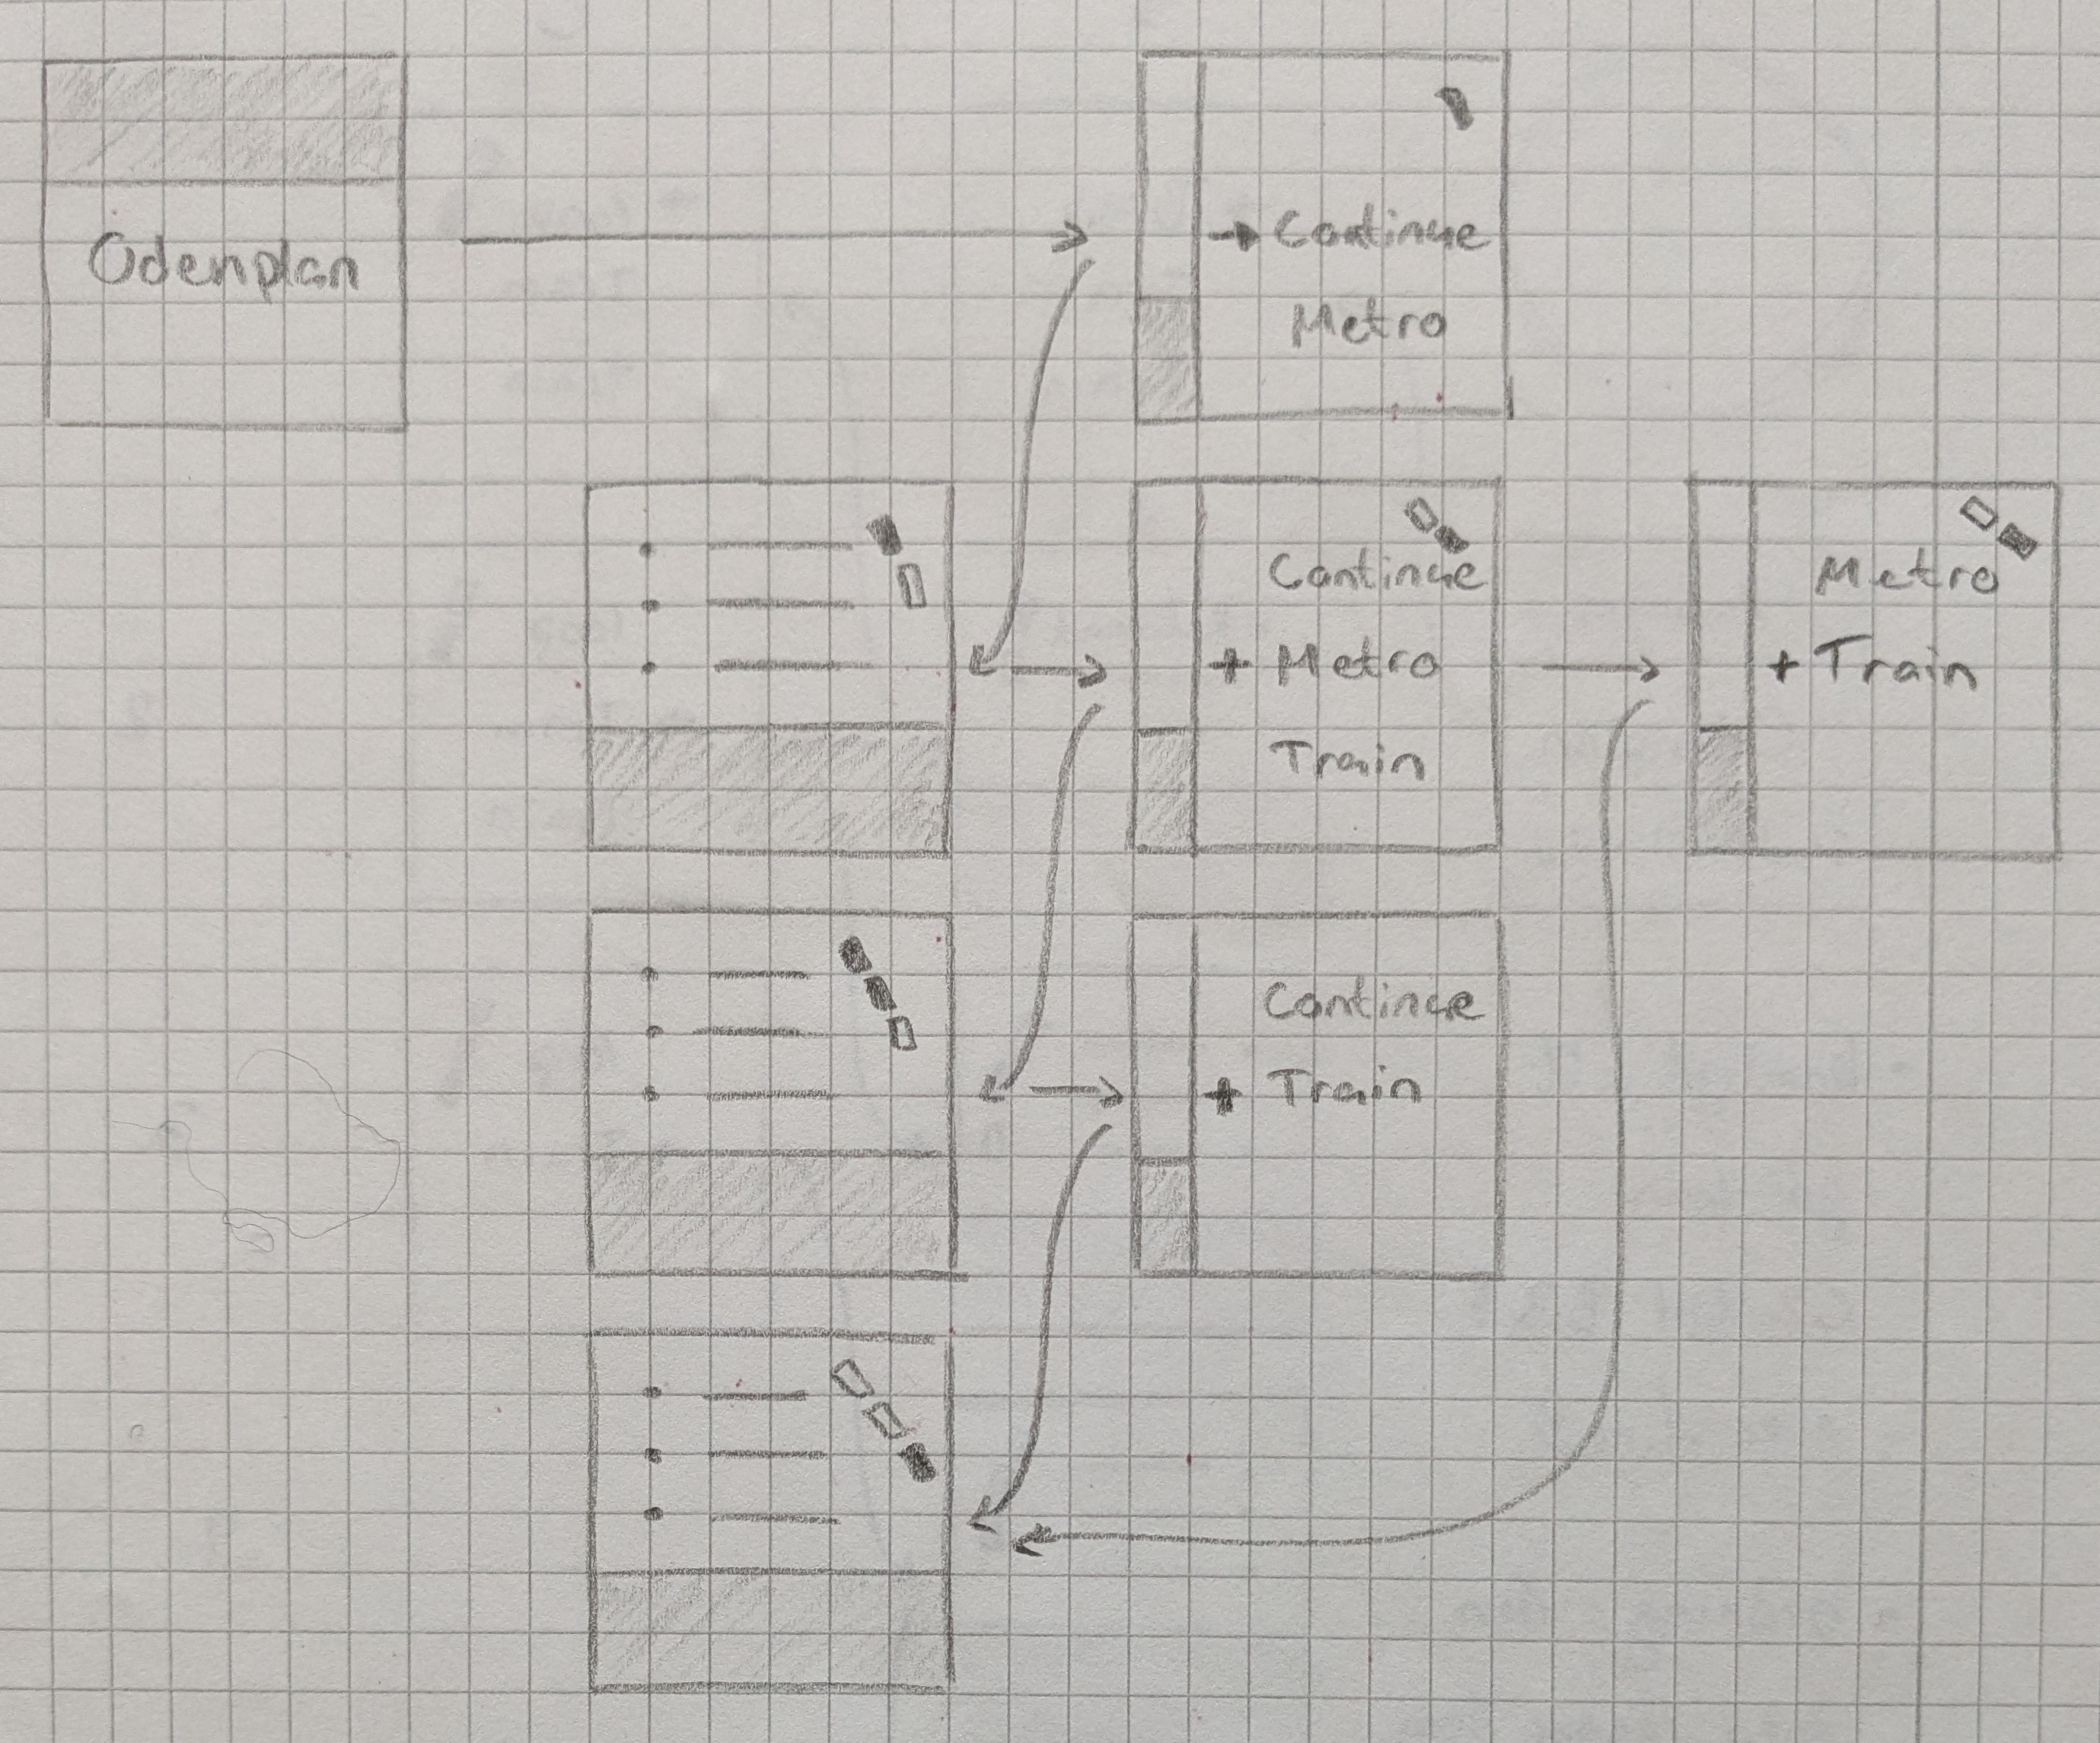 Odenplan
→ Continue
Metro
Continue
+ Metro
Train
Metro
+ Train
Continue
+ Train